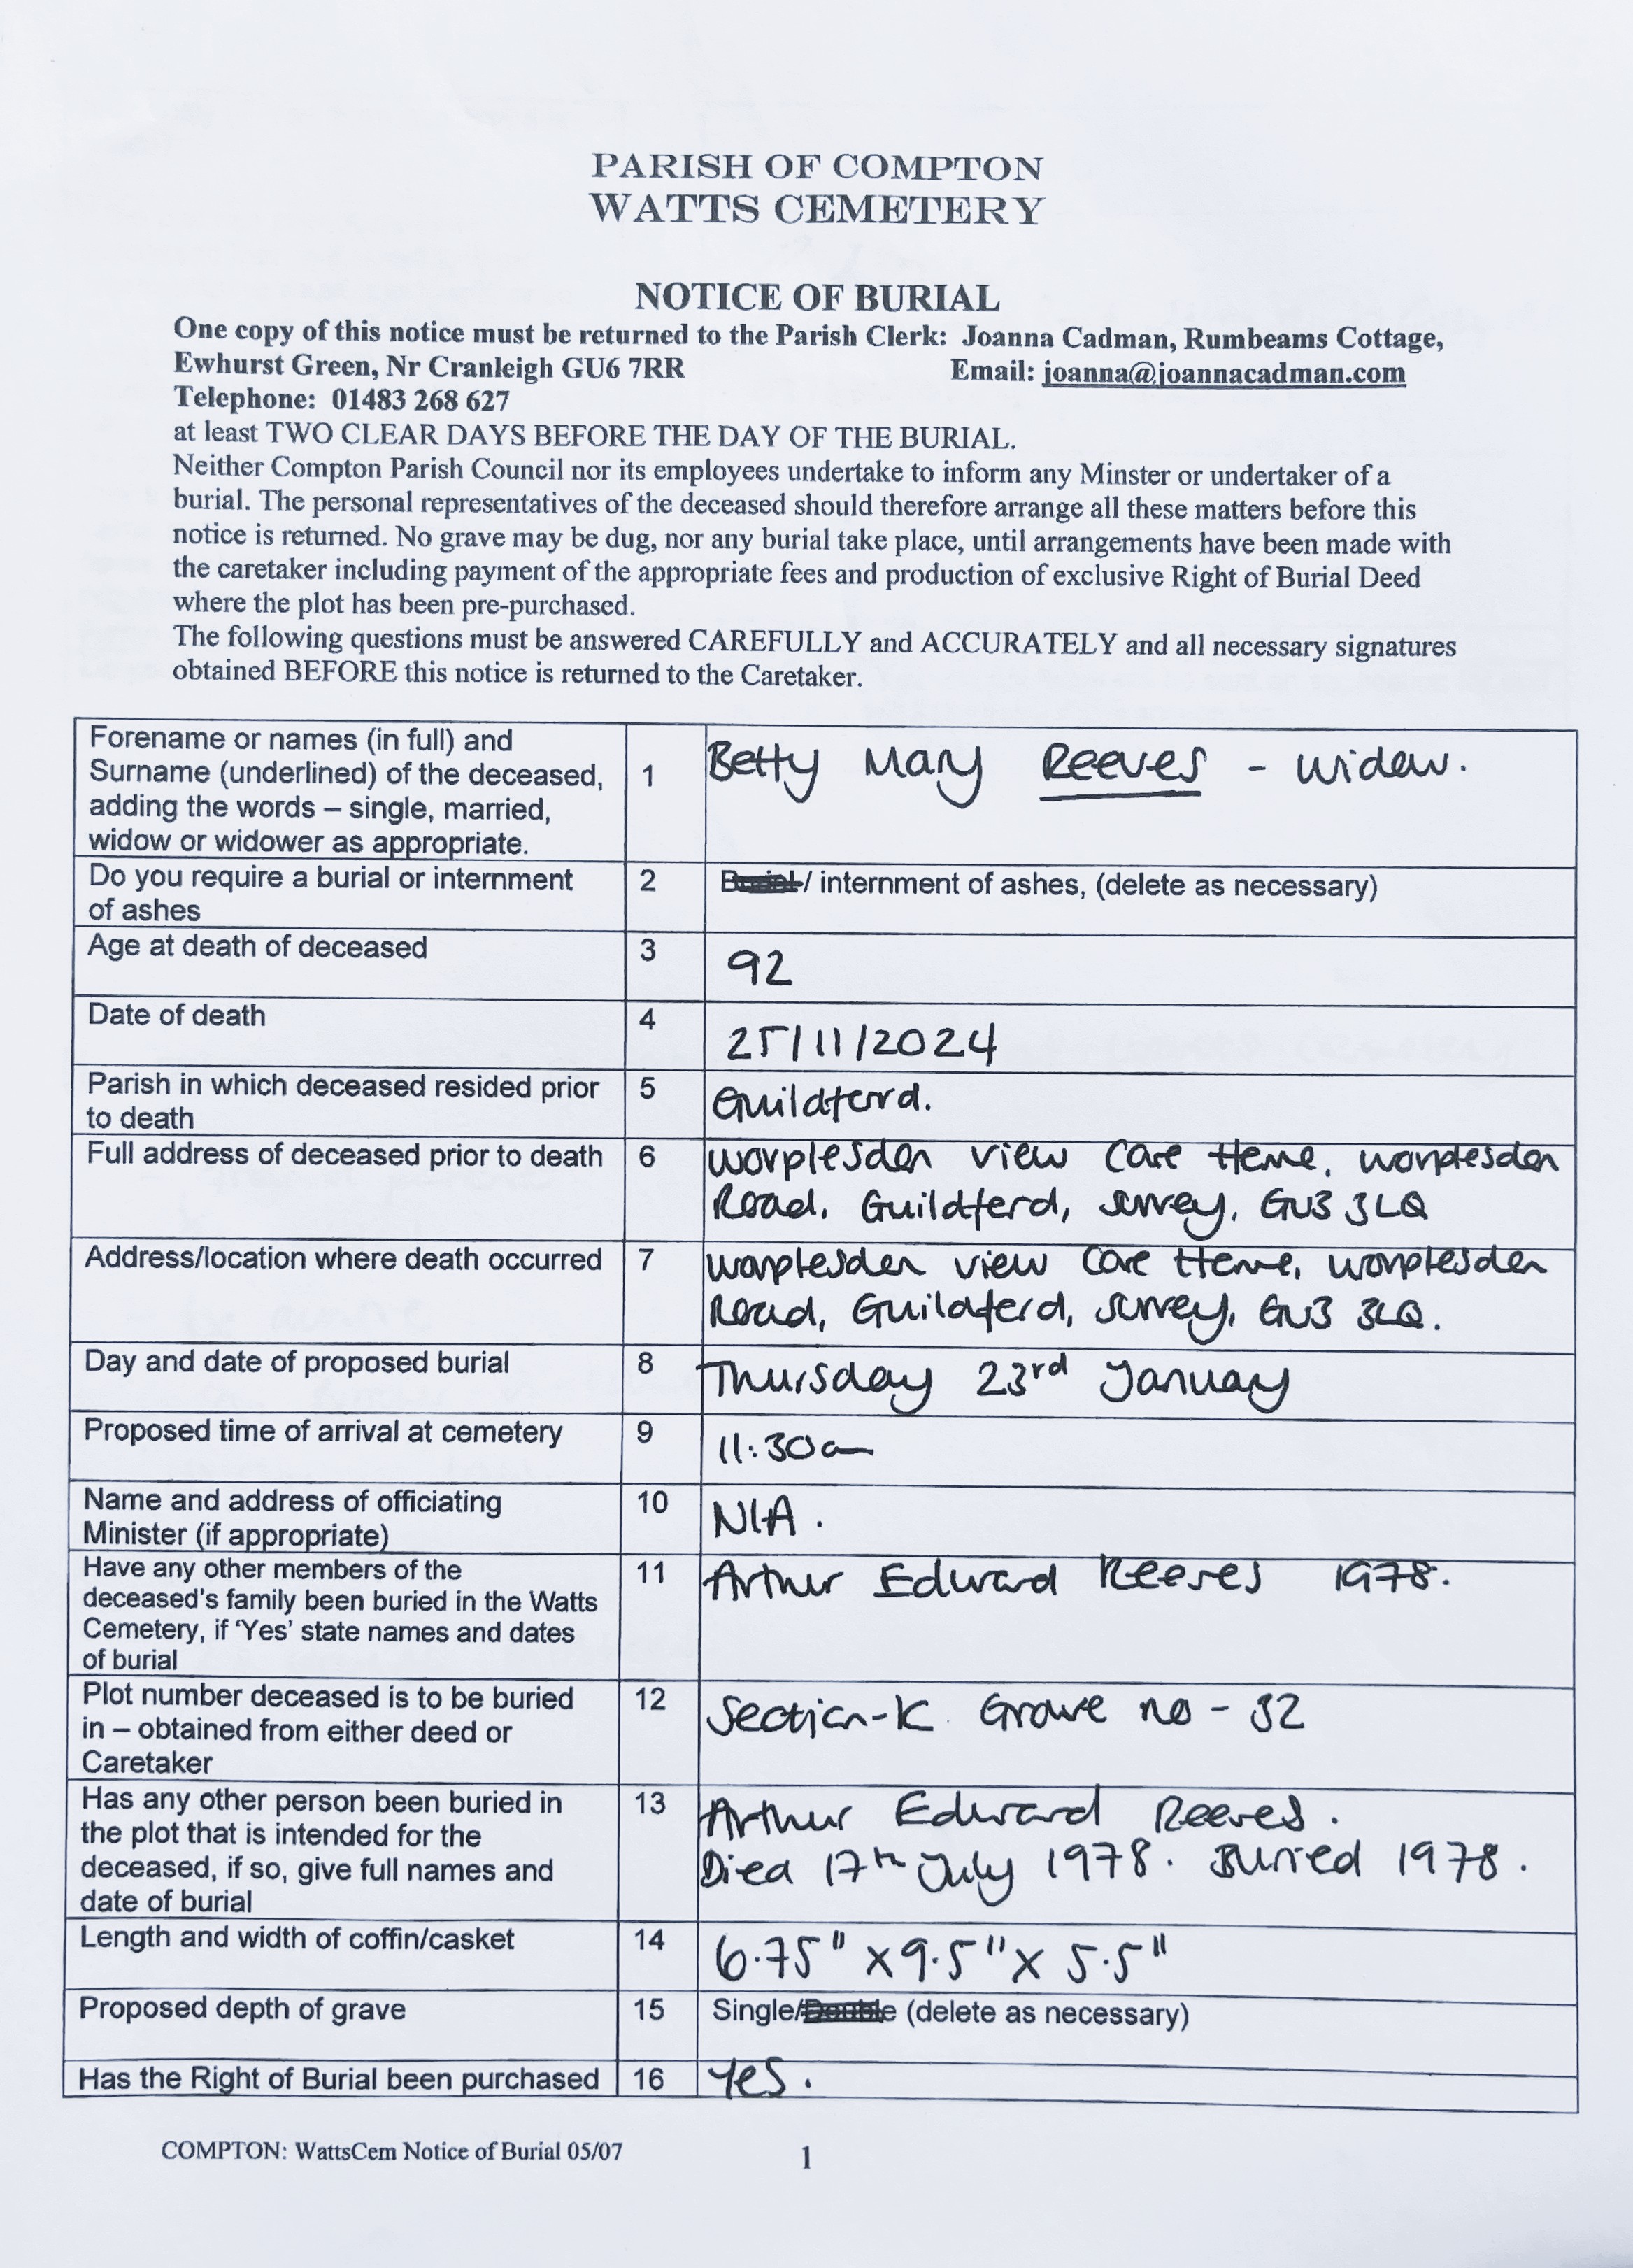 PARISH OF COMPTON
WATTS CEMETERY
NOTICE OF BURIAL
One copy of this notice must be returned to the Parish Clerk: Joanna Cadman, Rumbeams Cottage,
Ewhurst Green, Nr Cranleigh GU6 7RR Email: joanna@joannacadman.com
Telephone: 01483 268 627
at least TWO CLEAR DAYS BEFORE THE DAY OF THE BURIAL.
Neither Compton Parish Council nor its employees undertake to inform any Minster or undertaker of a
burial. The personal representatives of the deceased should therefore arrange all these matters before this
notice is returned. No grave may be dug, nor any burial take place, until arrangements have been made with
the caretaker including payment of the appropriate fees and production of exclusive Right of Burial Deed
where the plot has been pre-purchased.
The following questions must be answered CAREFULLY and ACCURATELY and all necessary signatures
obtained BEFORE this notice is returned to the Caretaker.
Forename or names (in full) and
Surname (underlined) of the deceased,
adding the words – single, married,
widow or widower as appropriate.
1
Betty Mary Reeves - widow.
Do you require a burial or internment
of ashes
2
Burial / internment of ashes, (delete as necessary)
Age at death of deceased
3
92
Date of death
4
25/11/2024
Parish in which deceased resided prior
to death
5
Guildford.
Full address of deceased prior to death
6
Worplesdon View Care Home, Worplesdon
Road, Guildford, Surrey, GU3 3LQ
Address/location where death occurred
7
Worplesdon View Care Home, Worplesdon
Road, Guildford, Surrey, GU3 3LQ.
Day and date of proposed burial
8
Thursday 23rd January
Proposed time of arrival at cemetery
9
11:30am
Name and address of officiating
Minister (if appropriate)
10
N/A.
Have any other members of the
deceased's family been buried in the Watts
Cemetery, if 'Yes' state names and dates
of burial
11
Arthur Edward Reeves 1978.
Plot number deceased is to be buried
in – obtained from either deed or
Caretaker
12
Section-K Grave no - 32
Has any other person been buried in
the plot that is intended for the
deceased, if so, give full names and
date of burial
13
Arthur Edward Reeves.
Died 17th July 1978. Buried 1978.
Length and width of coffin/casket
14
6.75" x 9.5" x 5.5"
Proposed depth of grave
15
Single/Double (delete as necessary)
Has the Right of Burial been purchased
16
Yes.
COMPTON: WattsCem Notice of Burial 05/07
1